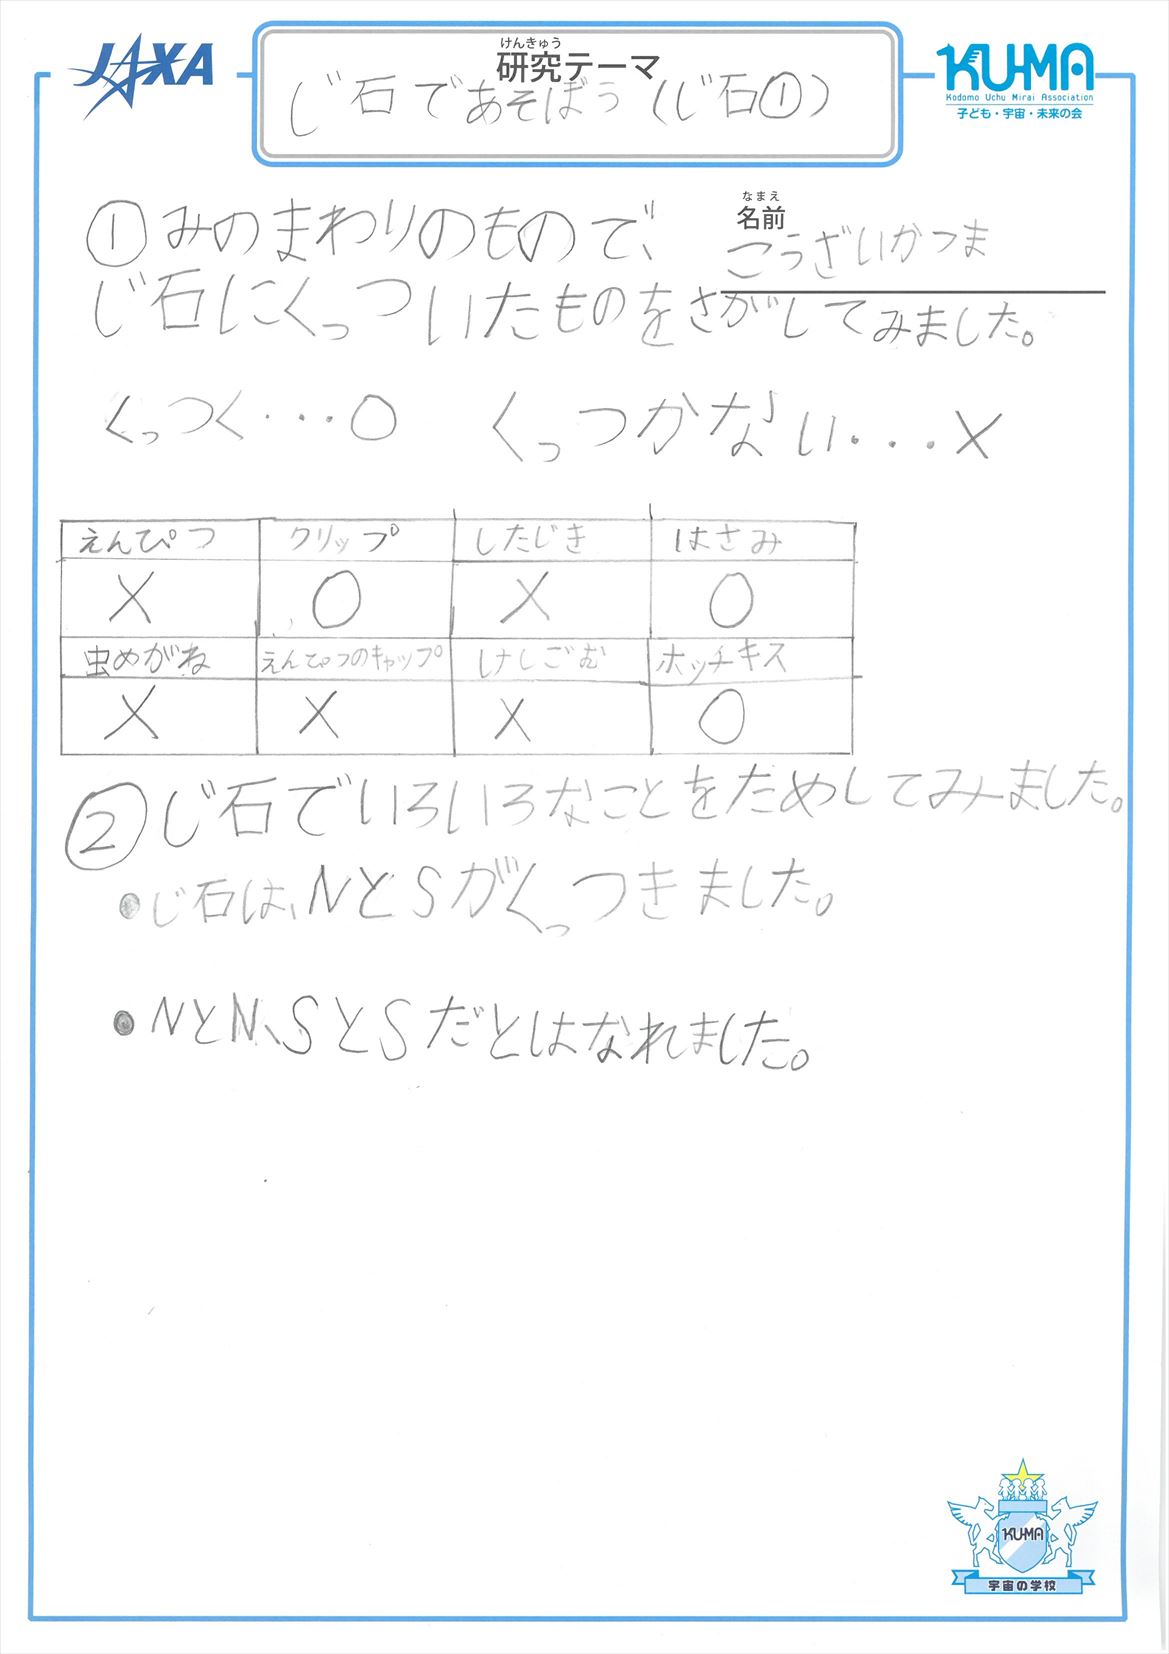 JAXA
けんきゅう
研究テーマ
じ石であそぼう(じ石①)
KU-MA
Kodomo Uchu Mirai Association
子ども・宇宙・未来の会
なまえ
名前
こうざいかつま
①みのまわりのもので、
じ石にくっついたものをさがしてみました。
くっつく・・・〇 くっつかない・・・×
えんぴつ クリップ したじき はさみ
× 〇 × 〇
虫めがね えんぴつのキャップ けしごむ ホッチキス
× × × 〇
②じ石でいろいろなことをためしてみました。
●じ石は、NとSがくっつきました。
●NとN、SとSだとはなれました。
KU-MA
宇宙の学校